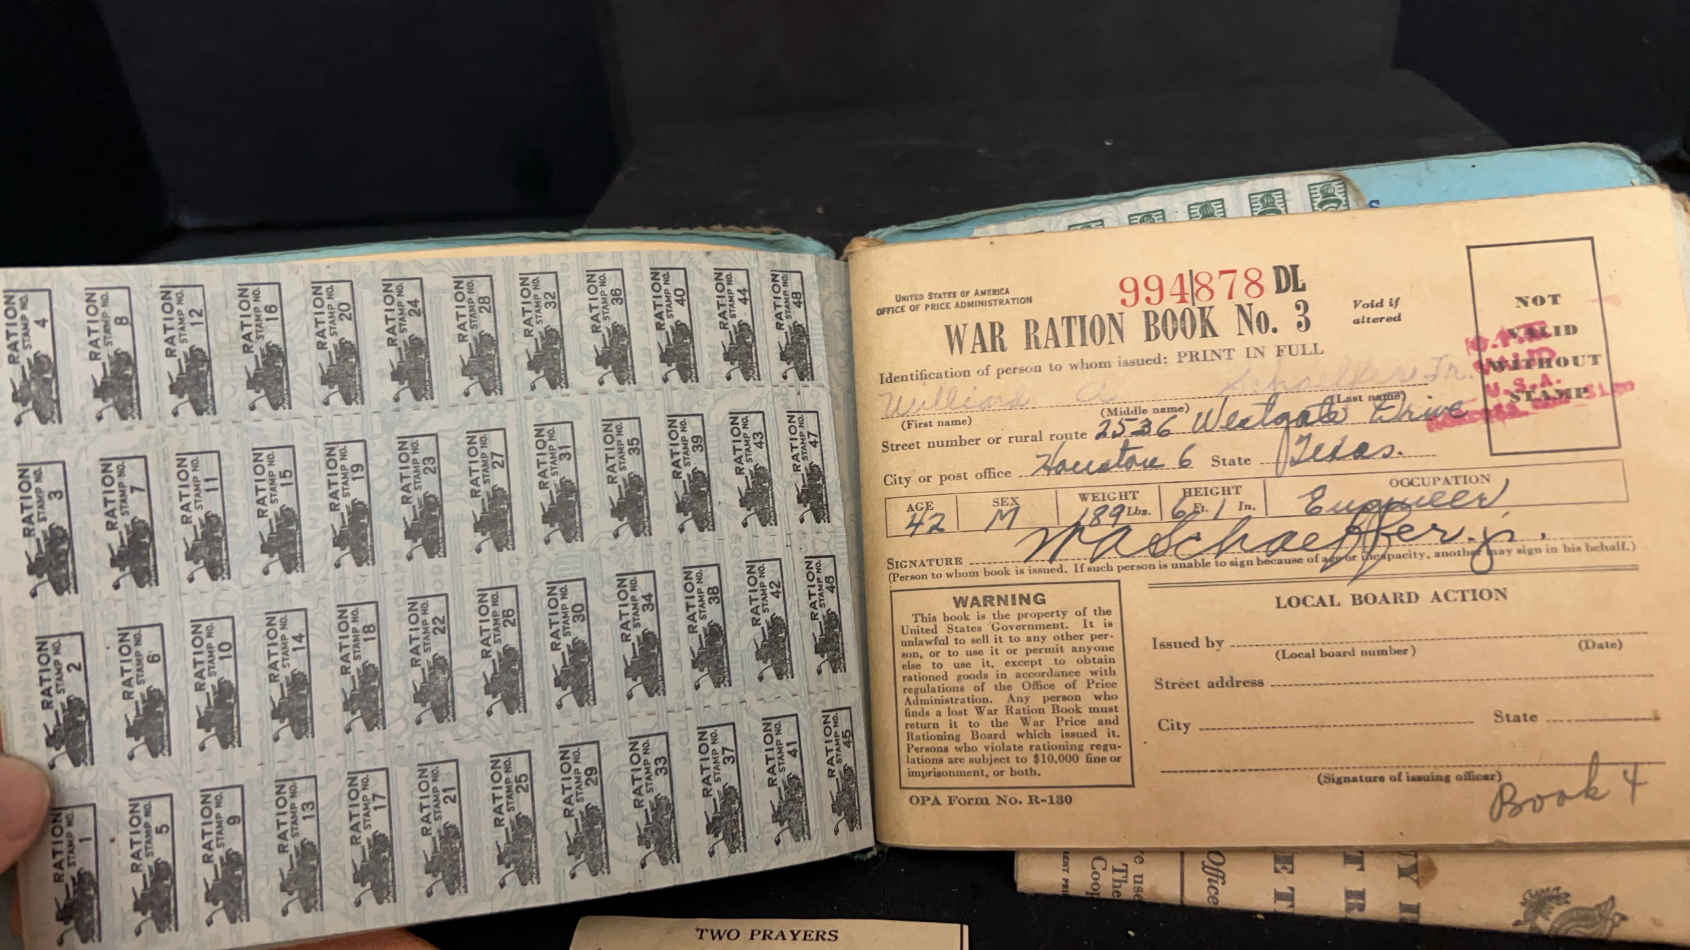 RATION STAMP NO. 4
RATION STAMP NO. 8
RATION STAMP NO. 12
RATION STAMP NO. 16
RATION STAMP NO. 20
RATION STAMP NO. 24
RATION STAMP NO. 28
RATION STAMP NO. 32
RATION STAMP NO. 36
RATION STAMP NO. 40
RATION STAMP NO. 44
RATION STAMP NO. 48
RATION STAMP NO. 3
RATION STAMP NO. 7
RATION STAMP NO. 11
RATION STAMP NO. 15
RATION STAMP NO. 19
RATION STAMP NO. 23
RATION STAMP NO. 27
RATION STAMP NO. 31
RATION STAMP NO. 35
RATION STAMP NO. 39
RATION STAMP NO. 43
RATION STAMP NO. 47
RATION STAMP NO. 2
RATION STAMP NO. 6
RATION STAMP NO. 10
RATION STAMP NO. 14
RATION STAMP NO. 18
RATION STAMP NO. 22
RATION STAMP NO. 26
RATION STAMP NO. 30
RATION STAMP NO. 34
RATION STAMP NO. 38
RATION STAMP NO. 42
RATION STAMP NO. 46
RATION STAMP NO. 1
RATION STAMP NO. 5
RATION STAMP NO. 9
RATION STAMP NO. 13
RATION STAMP NO. 17
RATION STAMP NO. 21
RATION STAMP NO. 25
RATION STAMP NO. 29
RATION STAMP NO. 33
RATION STAMP NO. 37
RATION STAMP NO. 41
RATION STAMP NO. 45
UNITED STATES OF AMERICA
OFFICE OF PRICE ADMINISTRATION
994878 DL
WAR RATION BOOK No. 3
Void if
altered
NOT
VALID
WITHOUT
STAMP
U.S.A.
Identification of person to whom issued: PRINT IN FULL
William A Schaeffer Jr.
(First name) (Middle name) (Last name)
Street number or rural route 2536 Westgate Drive
City or post office Houston 6 State Texas.
AGE SEX WEIGHT HEIGHT OCCUPATION
42 M 189 Lbs. 6 Ft. 1 In. Engineer
SIGNATURE W A Schaeffer. jr.
(Person to whom book is issued. If such person is unable to sign because of age or incapacity, another may sign in his behalf.)
WARNING
This book is the property of the
United States Government. It is
unlawful to sell it to any other per-
son, or to use it or permit anyone
else to use it, except to obtain
rationed goods in accordance with
regulations of the Office of Price
Administration. Any person who
finds a lost War Ration Book must
return it to the War Price and
Rationing Board which issued it.
Persons who violate rationing regu-
lations are subject to $10,000 fine or
imprisonment, or both.
OPA Form No. R-130
LOCAL BOARD ACTION
Issued by
(Local board number) (Date)
Street address
City State
(Signature of issuing officer)
Book 4
Office
The
Coop
TWO PRAYERS